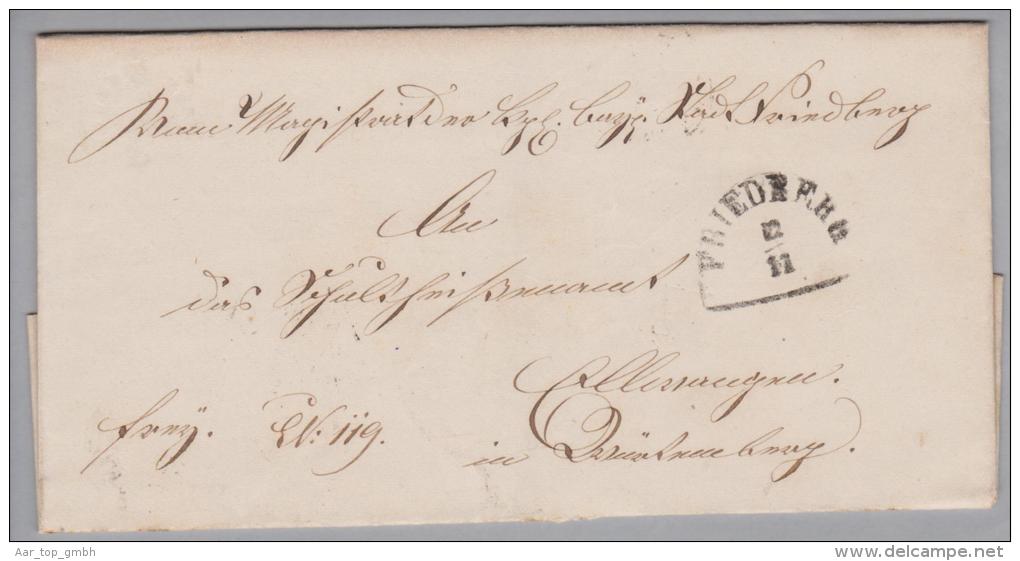 Vom Magistrat der kgl. bayr. Stadt Friedberg
An
das Schultheißenamt
FRIEDBERG
12
11
Ellwangen.
frey. N: 119.
in Würtemberg.
Aar_top_gmbh
www.delcampe.net